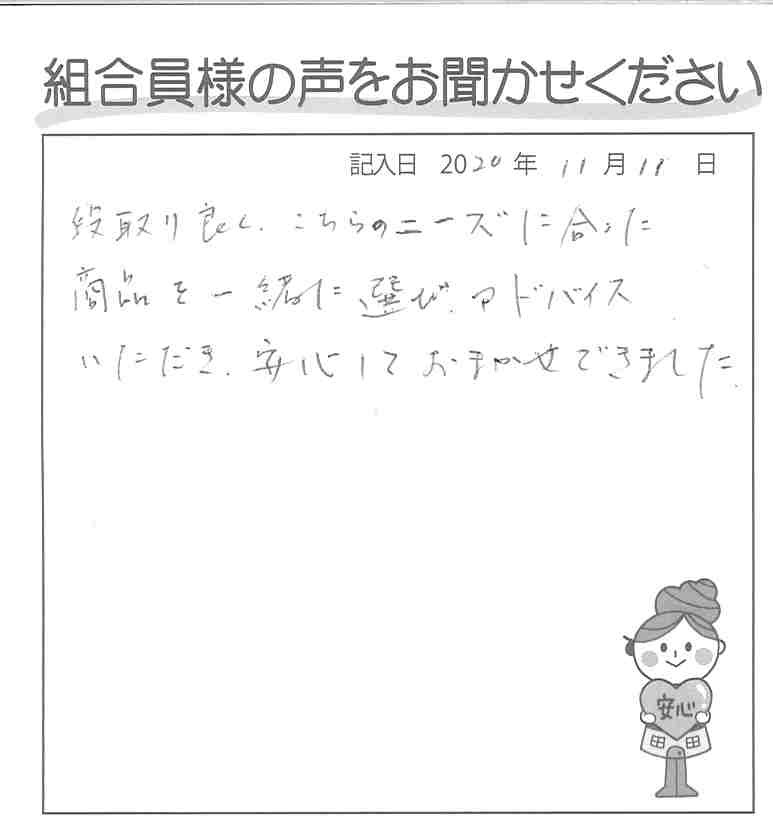 組合員様の声をお聞かせください
記入日 2020年 11月18日
段取り良く、こちらのニーズに合った
商品を一緒に選び、アドバイス
いただき、安心しておまかせできました。
安心